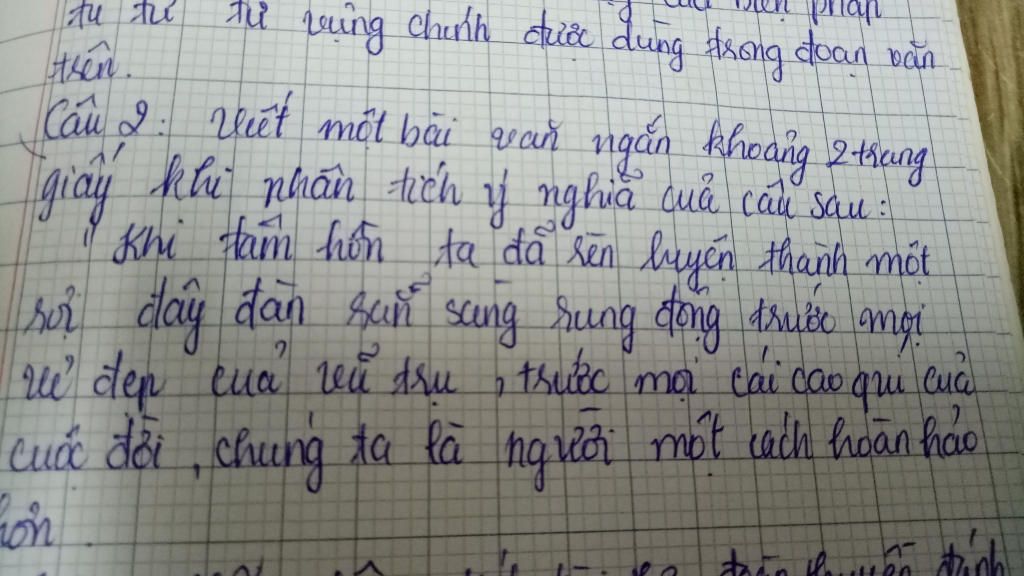 tu từ từ vựng chính được dùng trong đoạn văn
trên.
Câu 2: Viết một bài văn ngắn khoảng 2 trang
giấy khi phân tích ý nghĩa của câu sau:
"Khi tâm hồn ta đã rèn luyện thành một
sợi dây đàn sẵn sàng rung động trước mọi
vẻ đẹp của vũ trụ, trước mọi cái cao quí của
cuộc đời, chúng ta là người một cách hoàn hảo
hơn.